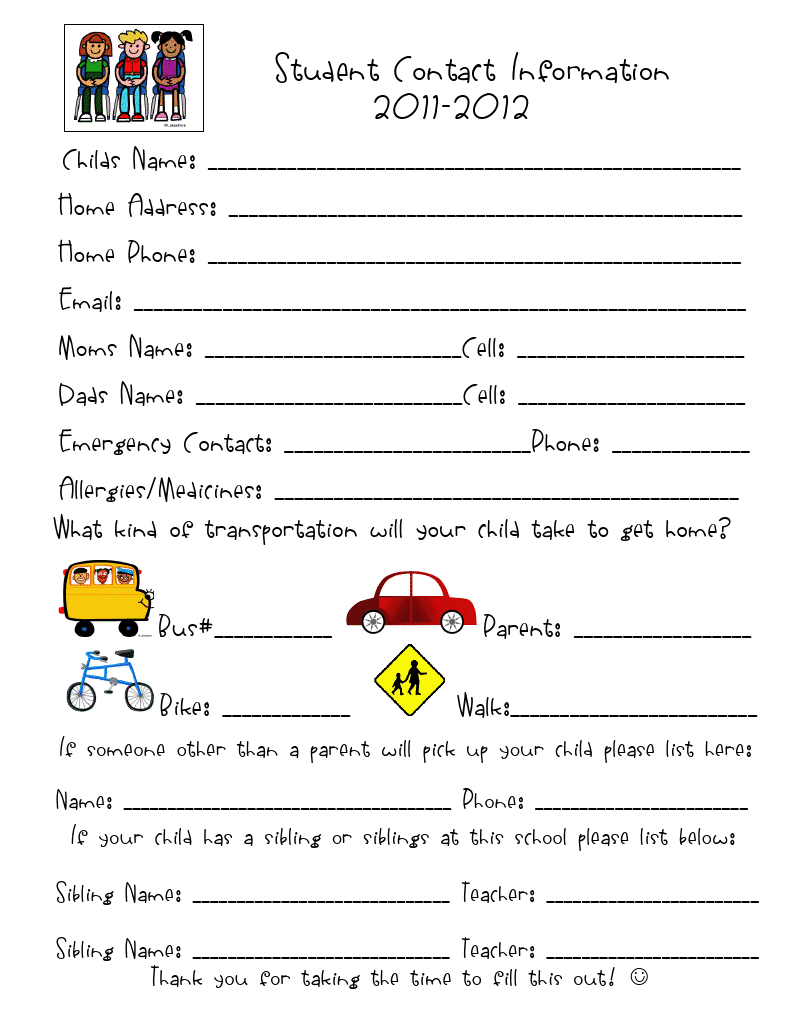 Student Contact Information
2011-2012
Childs Name: ________________________________
Home Address: ________________________________
Home Phone: ________________________________
Email: ________________________________
Moms Name: ________________Cell: ______________
Dads Name: ________________Cell: ______________
Emergency Contact: ________________Phone: _________
Allergies/Medicines: ____________________________
What kind of transportation will your child take to get home?
Bus#____________ Parent: ______________
Bike: __________ Walk:____________________
If someone other than a parent will pick up your child please list here:
Name: __________________________ Phone: _________________
If your child has a sibling or siblings at this school please list below:
Sibling Name: ____________________ Teacher: _________________
Sibling Name: ____________________ Teacher: _________________
Thank you for taking the time to fill this out! ☺